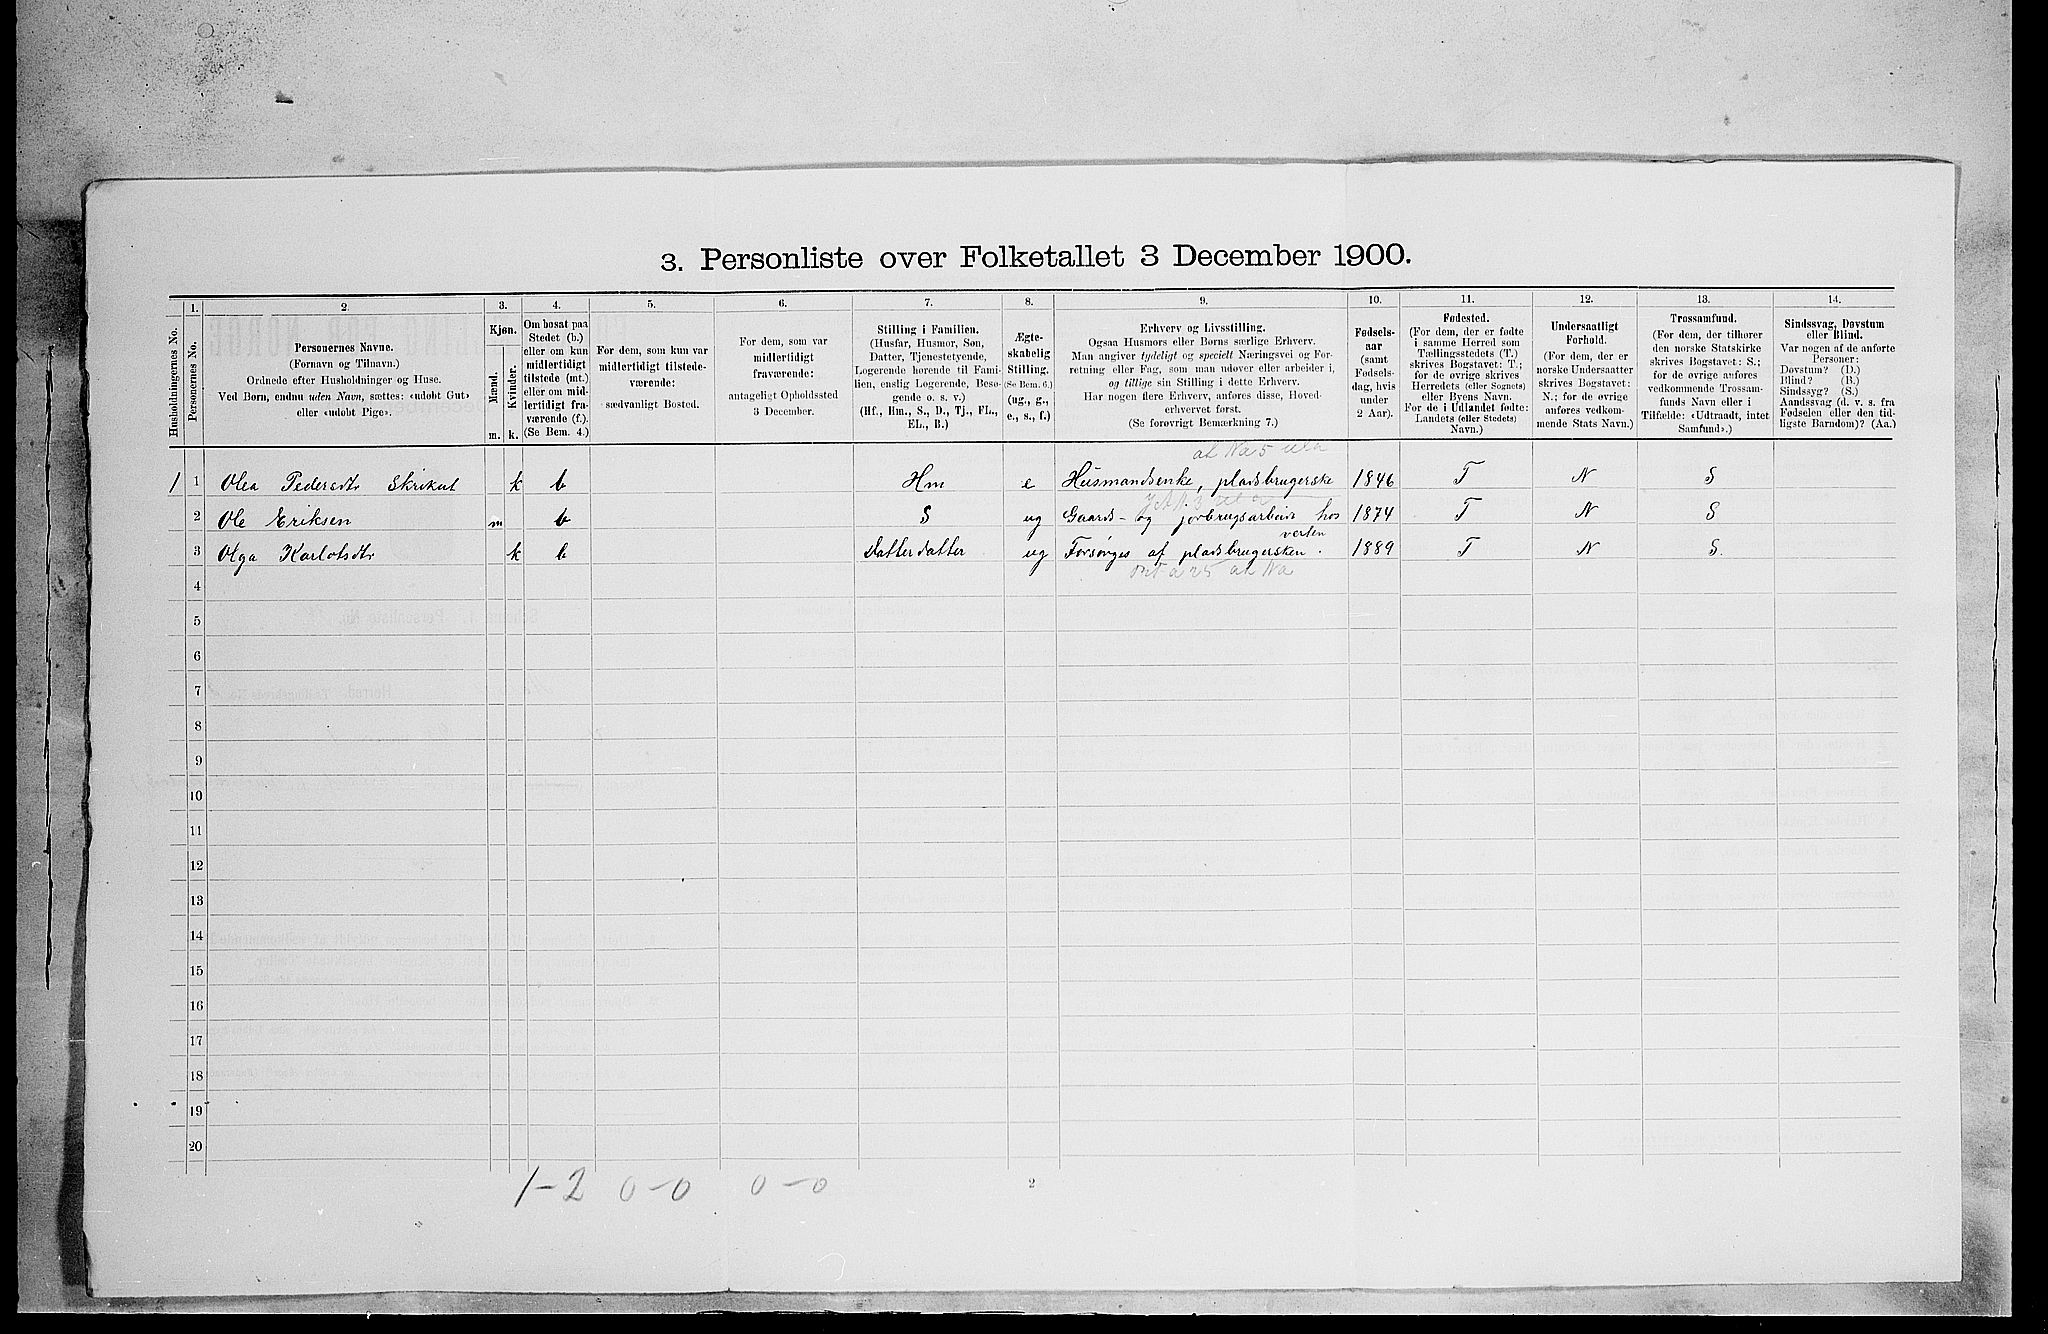 3. Personliste over Folketallet 3 December 1900.
Husholdningernes No.
1.
Personernes No.
2.
Personernes Navne.
(Fornavn og Tilnavn.)
Ordnede efter Husholdninger og Huse.
Ved Børn, endnu uden Navn, sættes: «udøbt Gut»
eller «udøbt Pige».
3.
Kjøn.
Mænd.
Kvinder.
m. k.
4.
Om bosat paa
Stedet (b.)
eller om kun
midlertidigt
tilstede (mt.)
eller om mid-
lertidigt fra-
værende (f.).
(Se Bem. 4.)
5.
For dem, som kun var
midlertidigt tilstede-
værende:
sædvanligt Bosted.
6.
For dem, som var
midlertidigt
fraværende:
antageligt Opholdssted
3 December.
7.
Stilling i Familien.
(Husfar, Husmor, Søn,
Datter, Tjenestetyende,
Logerende hørende til Fami-
lien, enslig Logerende, Besø-
gende o. s. v.)
(Hf., Hm., S., D., Tj., FL.,
EL., B.)
8.
Ægte-
skabelig
Stilling.
(Se Bem. 6.)
(ug., g.,
e., s., f.)
9.
Erhverv og Livsstilling.
Ogsaa Husmors eller Børns særlige Erhverv.
Man angiver tydeligt og specielt Næringsvei og For-
retning eller Fag, som man udøver eller arbeider i,
og tillige sin Stilling i dette Erhverv.
Har nogen flere Erhverv, anføres disse, Hoved-
erhvervet først.
(Se forøvrigt Bemærkning 7.)
10.
Fødsels-
aar
(samt
Fødsels-
dag, hvis
under
2 Aar).
11.
Fødested.
(For dem, der er fødte
i samme Herred som
Tællingsstedets (T.)
skrives Bogstavet: T.;
for de øvrige skrives
Herredets (eller Sognets)
eller Byens Navn.
For de i Udlandet fødte:
Landets (eller Stedets)
Navn.)
12.
Undersaatligt
Forhold.
(For dem, der er
norske Undersaatter
skrives Bogstavet:
N.; for de øvrige
anføres vedkom-
mende Stats Navn.)
13.
Trossamfund.
(For dem, der tilhører
den norske Statskirke
skrives Bogstavet: S.;
for de øvrige anføres
vedkommende Trossam-
funds Navn eller i
Tilfælde: «Udtraadt, intet
Samfund».)
14.
Sindssvag, Døvstum
eller Blind.
Var nogen af de anførte
Personer:
Døvstum? (D.)
Blind? (B.)
Sindssyg? (S.)
Aandssvag (d. v. s. fra
Fødselen eller den tid-
ligste Barndom)? (Aa.)
1 1 Olea Pedersdtr Skrikut k b Hm e Husmandsenke, pladsbrugerske 1846 T N S
2 Ole Eriksen m b S ug Gaards- og jordbrugsarbeide hos verten 1874 T N S
3 Olga Karlotsdtr k b Datterdatter ug Forsørges af pladsbrugersken. 1889 T N S.
4
5
6
7
8
9
10
11
12
13
14
15
16
17
18
19
20
1-2 0-0 0-0
2